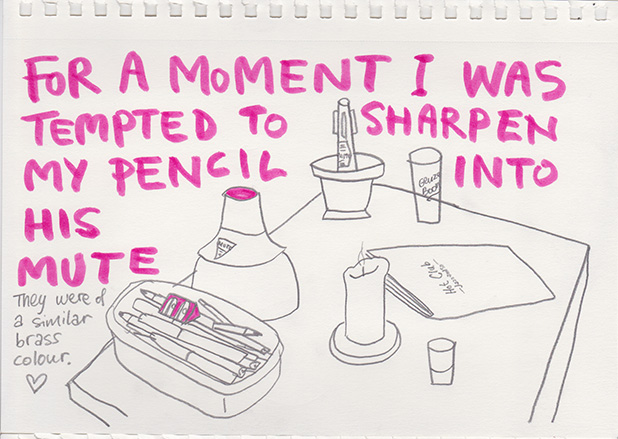 FOR A MOMENT I WAS
TEMPTED TO SHARPEN
MY PENCIL INTO
HIS
MUTE
They were of
a similar
brass
colour.
Hot Club